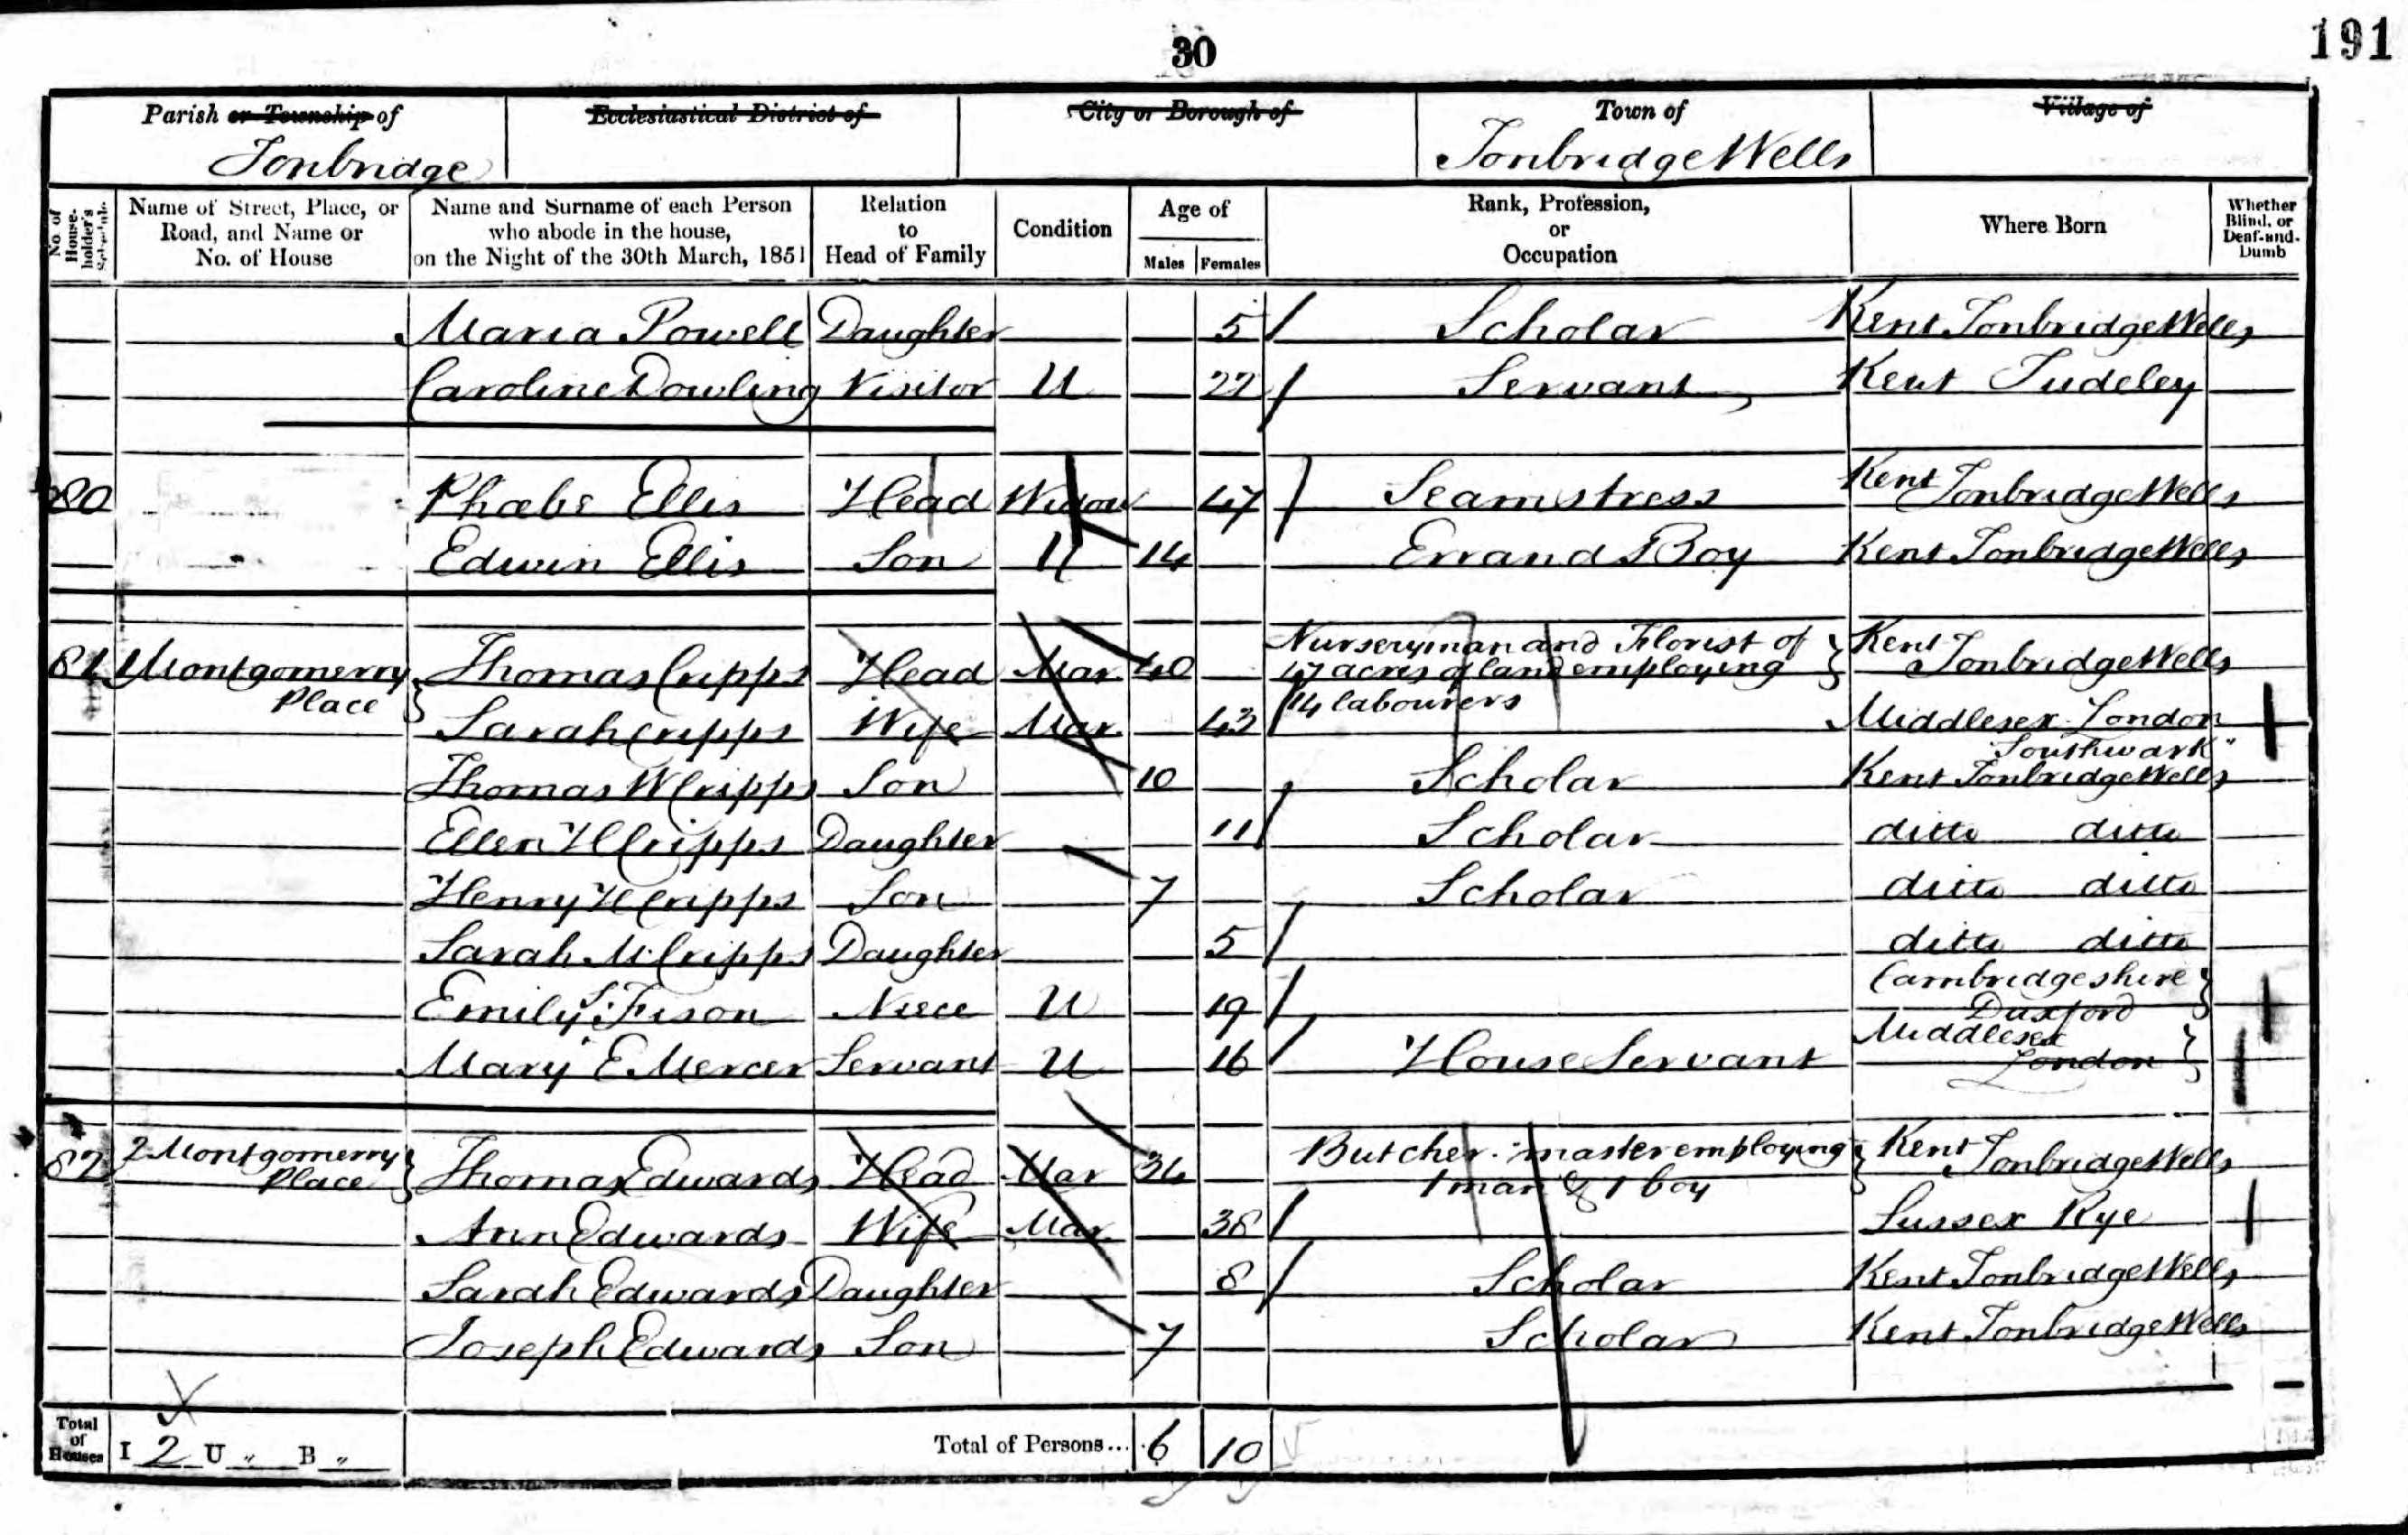 30
191
Parish or Township of Ecclesiastical District of City or Borough of Town of Village of
Tonbridge Tonbridge Wells
No. of House-holder's Schedule Name of Street, Place, or Road, and Name or No. of House Name and Surname of each Person who abode in the house, on the Night of the 30th March, 1851 Relation to Head of Family Condition Age of Males Females Rank, Profession, or Occupation Where Born Whether Blind, or Deaf-and-Dumb
Maria Powell Daughter 5 Scholar Kent Tonbridge Wells
Caroline Dowling Visitor U 22 Servant Kent Tudeley
80 Phœbe Ellis Head Widow 47 Seamstress Kent Tonbridge Wells
Edwin Ellis Son U 14 Errand Boy Kent Tonbridge Wells
81 1 Montgomerry Place Thomas Cripps Head Mar 40 Nurseryman and Florist of 47 acres of land employing 14 labourers Kent Tonbridge Wells
Sarah Cripps Wife Mar 43 Middlesex London "Southwark"
Thomas W Cripps Son 10 Scholar Kent Tonbridge Wells
Ellen H Cripps Daughter 11 Scholar ditto ditto
Henry H Cripps Son 7 Scholar ditto ditto
Sarah M Cripps Daughter 5 ditto ditto
Emily S. Fison Niece U 19 Cambridgeshire Duxford
Mary E Mercer Servant U 16 House Servant Middlesex London
82 2 Montgomerry Place Thomas Edwards Head Mar 34 Butcher. master employing 1 man & 1 boy Kent Tonbridge Wells
Ann Edwards Wife Mar 38 Sussex Rye
Sarah Edwards Daughter 8 Scholar Kent Tonbridge Wells
Joseph Edwards Son 7 Scholar Kent Tonbridge Wells
Total of Houses I 2 U " B " Total of Persons... 6 10